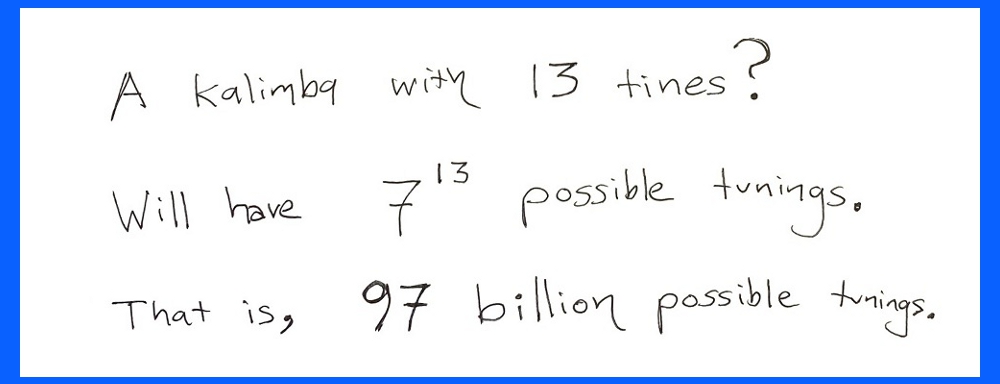 A kalimba with 13 tines?
Will have 7¹³ possible tunings.
That is, 97 billion possible tunings.